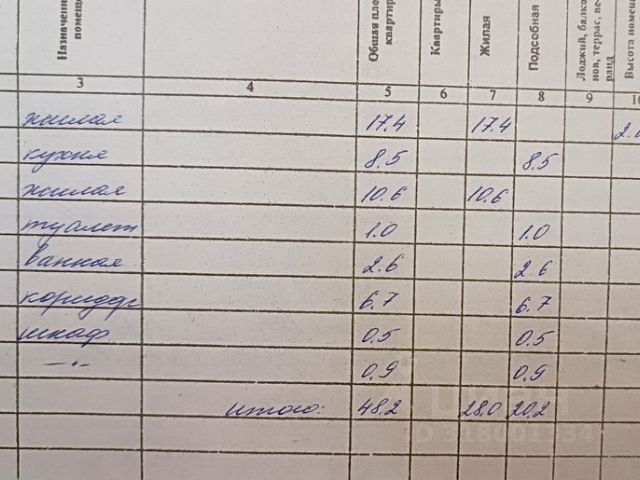 Назначени
помеще
Общая пло
квартир
Квартиры
Жилая
Подсобная
Лоджий, балко
нов, террас, ве
ранд
Высота помещ
3 4 5 6 7 8 9 10
жилая 17.4 17.4
кухня 8.5 8.5
жилая 10.6 10.6
туалет 1.0 1.0
ванная 2.6 2.6
коридор 6.7 6.7
шкаф 0.5 0.5
-"- 0.9 0.9
итого: 48.2 28.0 20.2